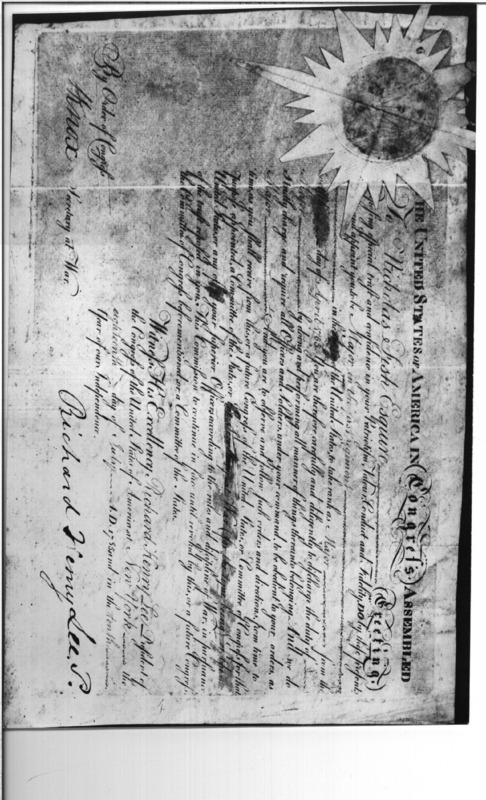 THE UNITED STATES OF AMERICA IN CONGRESS ASSEMBLED
Greeting.
To Nicholas Fish Esquire
special trust and confidence in your Patriotism, Valour, Conduct and Fidelity, DO by these presents
appoint you to be Major
in the of the United States, to take rank as Major from the
day of April 1785. You are therefore carefully and diligently to discharge the duty of
by doing and performing all manner of things thereunto belonging. And we do
strictly charge and require all Officers and Soldiers under your command, to be obedient to your orders, as
And you are to observe and follow such orders and directions, from time to
time as you shall receive from this, or a future Congress of the United States, or Committee of Congress for that
purpose appointed, a Committee of the States, or
United States or any your superior Officer, according to the rules and discipline of War, in pursuance
of the trust reposed in you. This Commission to continue in force until revoked by this, or a future Congress,
the Committee of Congress before mentioned, or a Committee of the States.
Witness His Excellency Richard Henry Lee President of
the Congress of the United States of America at New York the
eighteenth day of July A.D. 1785 and in the tenth
Year of our Independence.
Richard Henry Lee. P.
By Order of Congress
Knox Secretary at War.